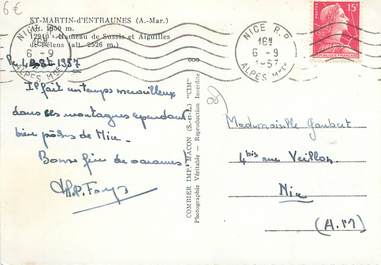 6€
ST-MARTIN-d'ENTRAUNES (A.-Mar.)
(Alt. 1050 m.
12910 - Hameau de Sussis et Aiguilles
de Pelens (alt. 2526 m.)
NICE R.P.
16H
6 - 9
ALPES Mmes
NICE R.P.
16H
6 - 9
1957
ALPES Mmes
15F
1957
Il fait un temps merveilleux
dans ces montagnes cependant
bien près de Nice
Bonne fin de vacances!
COMBIER IMP. MACON (S.-et-L.) "CIM"
Photographie Véritable - Reproduction Interdite
Mademoiselle Gaubert
4bis rue Veillon
Nice
(A.M)